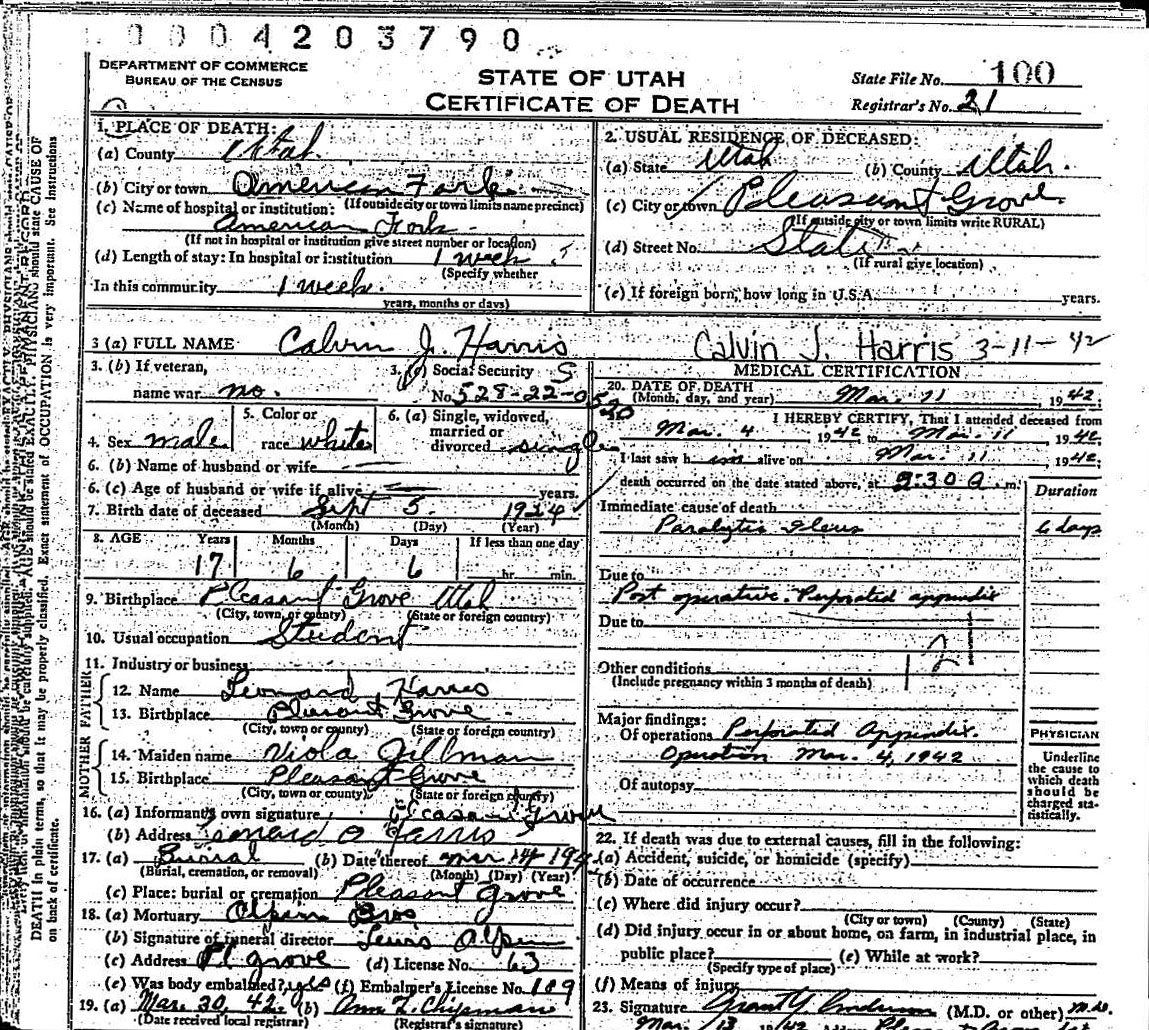 0004203790
DEPARTMENT OF COMMERCE
BUREAU OF THE CENSUS
STATE OF UTAH
CERTIFICATE OF DEATH
State File No. 100
Registrar's No. 21
1. PLACE OF DEATH:
(a) County Utah
(b) City or town American Fork
(If outside city or town limits name precinct)
(c) Name of hospital or institution:
American Fork
(If not in hospital or institution give street number or location)
(d) Length of stay: In hospital or institution 1 week
(Specify whether
In this community 1 week.
years, months or days)
2. USUAL RESIDENCE OF DECEASED:
(a) State Utah (b) County Utah.
(c) City or town Pleasant Grove
(If outside city or town limits write RURAL)
(d) Street No. State
(If rural give location)
(e) If foreign born, how long in U.S.A. years.
3 (a) FULL NAME Calvin J. Harris
Calvin J. Harris 3-11-42
3. (b) If veteran,
name war no.
3. (c) Social Security
No. 528-22-0520
4. Sex male
5. Color or
race white
6. (a) Single, widowed,
married or
divorced single
6. (b) Name of husband or wife
6. (c) Age of husband or wife if alive years.
7. Birth date of deceased Sept 5. 1924
(Month) (Day) (Year)
8. AGE Years Months Days If less than one day
17 6 6 hr. min.
9. Birthplace Pleasant Grove Utah
(City, town, or county) (State or foreign country)
10. Usual occupation Student
11. Industry or business
FATHER
12. Name Leonard Harris
13. Birthplace Pleasant Grove
(City, town or county) (State or foreign country)
MOTHER
14. Maiden name Viola Gillman
15. Birthplace Pleasant Grove
(City, town or county) (State or foreign country)
16. (a) Informant's own signature Pleasant Grove
(b) Address Leonard O Harris
17. (a) Burial (b) Date thereof Mar 14 194
(Burial, cremation, or removal) (Month) (Day) (Year)
(c) Place: burial or cremation Pleasant Grove
18. (a) Mortuary Bros
(b) Signature of funeral director Lewis
(c) Address Pl Grove (d) License No. 63
(e) Was body embalmed? yes (f) Embalmer's License No. 189
19. (a) Mar. 30, 42 (b) Ann L. Chipman
(Date received local registrar) (Registrar's signature)
MEDICAL CERTIFICATION
20. DATE OF DEATH
(Month, day, and year) Mar. 11, 1942.
I HEREBY CERTIFY, That I attended deceased from
Mar. 4 1942 to Mar. 11 1942.
I last saw him alive on Mar. 11 1942.
death occurred on the date stated above, at 9:30 a.m.
Duration
Immediate cause of death
Paralytic Ileus 6 days
Due to
Post operative. Perforated appendix
Due to
121
Other conditions
(Include pregnancy within 3 months of death)
Major findings:
Of operations Perforated Appendix.
Operation Mar. 4, 1942
Of autopsy
PHYSICIAN
Underline
the cause to
which death
should be
charged sta-
tistically.
22. If death was due to external causes, fill in the following:
(a) Accident, suicide, or homicide (specify)
(b) Date of occurrence
(c) Where did injury occur?
(City or town) (County) (State)
(d) Did injury occur in or about home, on farm, in industrial place, in
public place? (e) While at work?
(Specify type of place)
(f) Means of injury
23. Signature Grant Y. Anderson (M.D. or other) M.D.
Mar. 13 1942
DEATH in plain terms, so that it may be properly classified. Exact statement of OCCUPATION is very important. See instructions
on back of certificate.